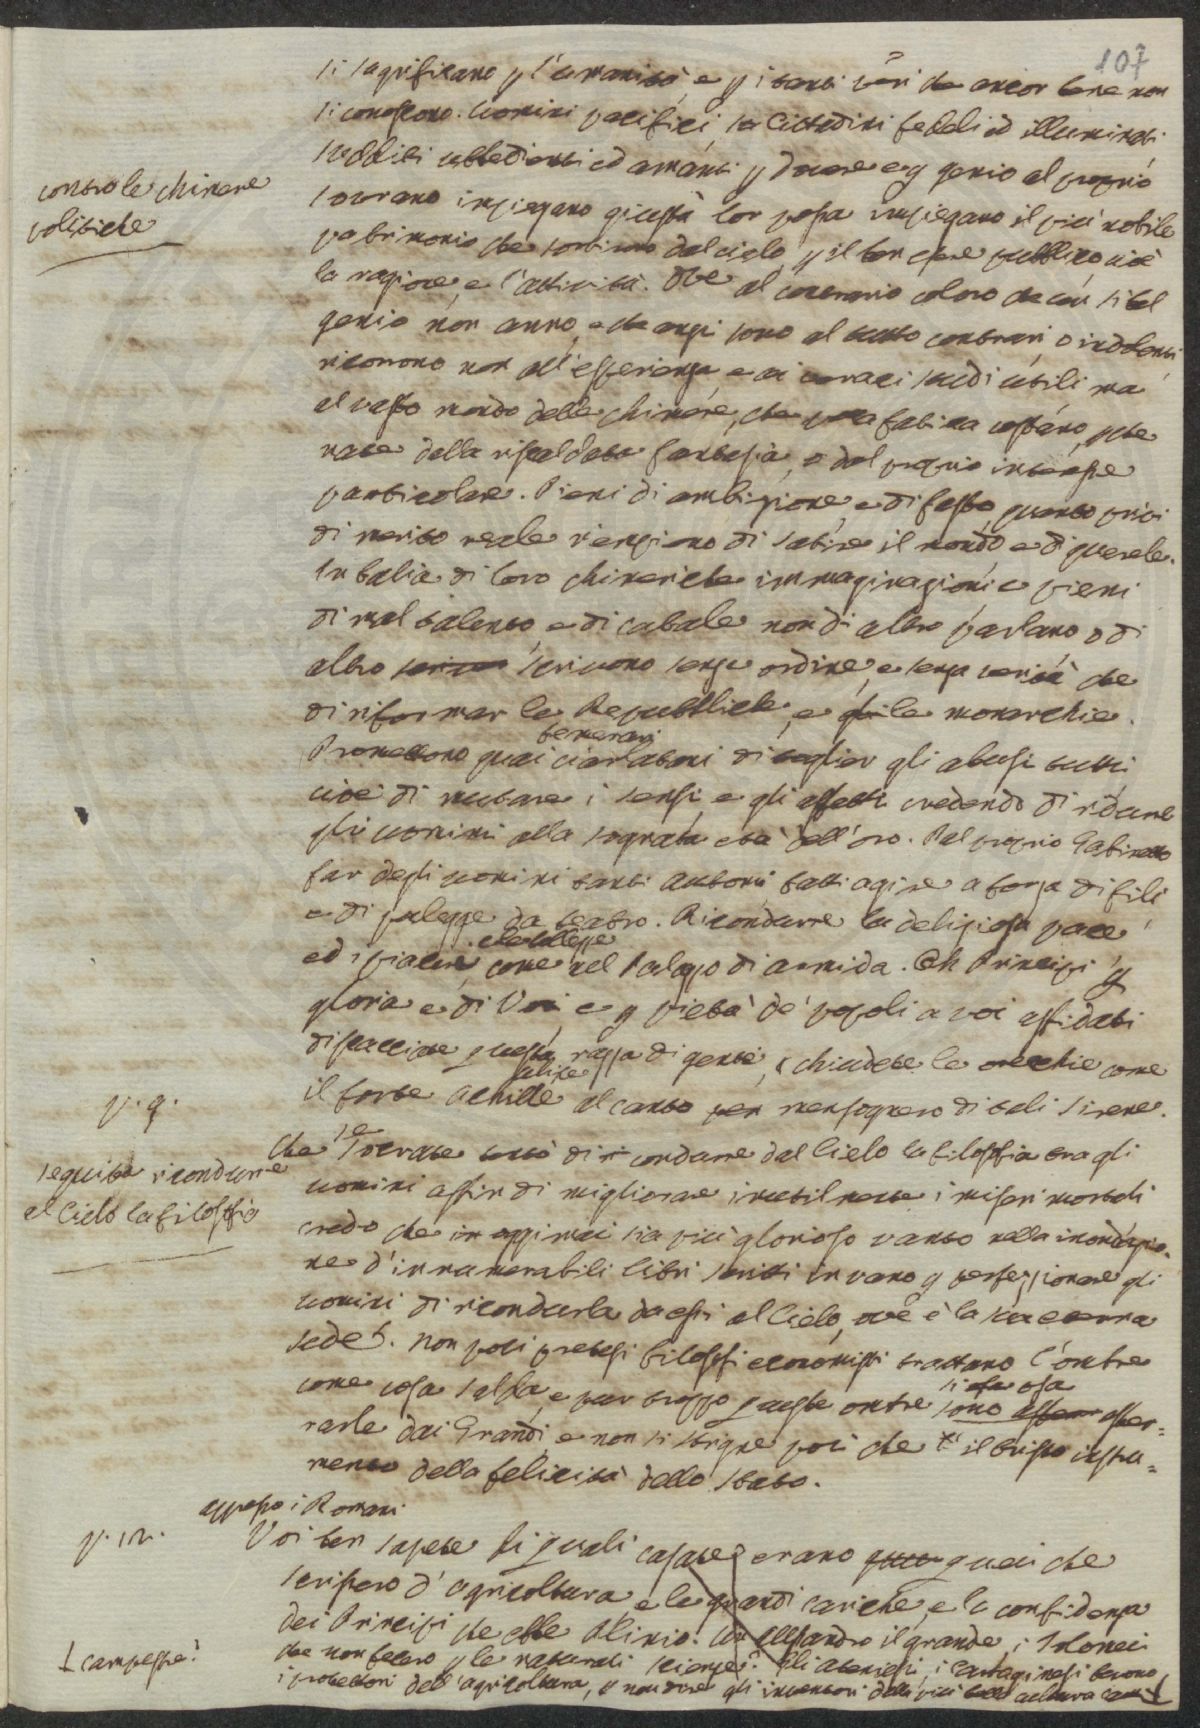 107
si sagrificano p l'umanità, e p i tanti veri che ancor bene non
si conoscono. Uomini pacifici Cittadini fedeli ed illuminati
sudditi ubbedienti ed amanti p dovere e p genio al proprio
contro le chimere
politiche
sovrano impiegano giusta lor possa impiegano il più nobile
patrimonio che sortirono dal cielo p il ben essere pubblico, cioè
la ragione e l'attività. Ove al contrario coloro che un sì bel
genio non anno, e che anzi sono al tutto contrari, o indolenti
ricorrono non all'esperienza e ai veraci studi utili ma
al vasto mondo delle chimere, che poca fatica costano, p che
nate dalla riscaldata fantasia, o dal proprio interesse
particolare. Pieni di ambizione, e di fasto quanto privi
di merito reale riempiono di satire il mondo e di querele.
In balia di loro chimeriche immaginazioni e pieni
di mal talento, e di cabale non di altro parlano o di
altro scrivono senza ordine, e senza verità che
di riformar le Repubbliche, e le monarchie.
temerari
Promettono quai ciarlatani di toglier gli abusi tutti
cioè di mutare i sensi e gli affetti credendo di ridurre
gli uomini alla sognata età dell'oro. Dal proprio Gabinetto
far degli uomini tanti automi fatti agire a forza di fili
e di pulegge da teatro. Ricondurre la deliziosa pace
ed i piaceri come nel Palazzo di Armida. Oh Principi p
gloria e di Voi e p pietà de' popoli a voi affidati
discacciate questa razza di gente, chiudete le orecchie come
il forte Ulisse al canto mensognero di tali sirene.
p. 9.
che se Socrate tentò di condurre dal Cielo la filosofia tra gli
seguita ricondurre
al Cielo la filosofia
uomini affin di migliorare inutilmente i miseri mortali
credo che oggimai sia più glorioso vanto nella inondazio-
ne d'innumerabili libri scritti invano p perfezionare gli
uomini di ricondurla da essi al Cielo, ove è la sua eterna
sede. Non pochi pretesi filosofi economisti trattano l'ombre
come cosa salda, e pur troppo queste ombre si osa asser-
rarle dai Grandi, e non si stringe poi che il tristo instru-
mento della felicità dello stato.
appresso i Romani
p. 12.
Voi ben sapete di quali casate erano quei che
scrissero d'agricoltura, e le grandi cariche, e la confidenza
dei Principi che ebbe Plinio. Un Alessandro il grande, i Tolomei
che non fecero p le naturali scienze? Gli Ateniesi, i Cartaginesi furono
i protettori dell'agricoltura, p non dire gli inventori della più cultura
campestre?